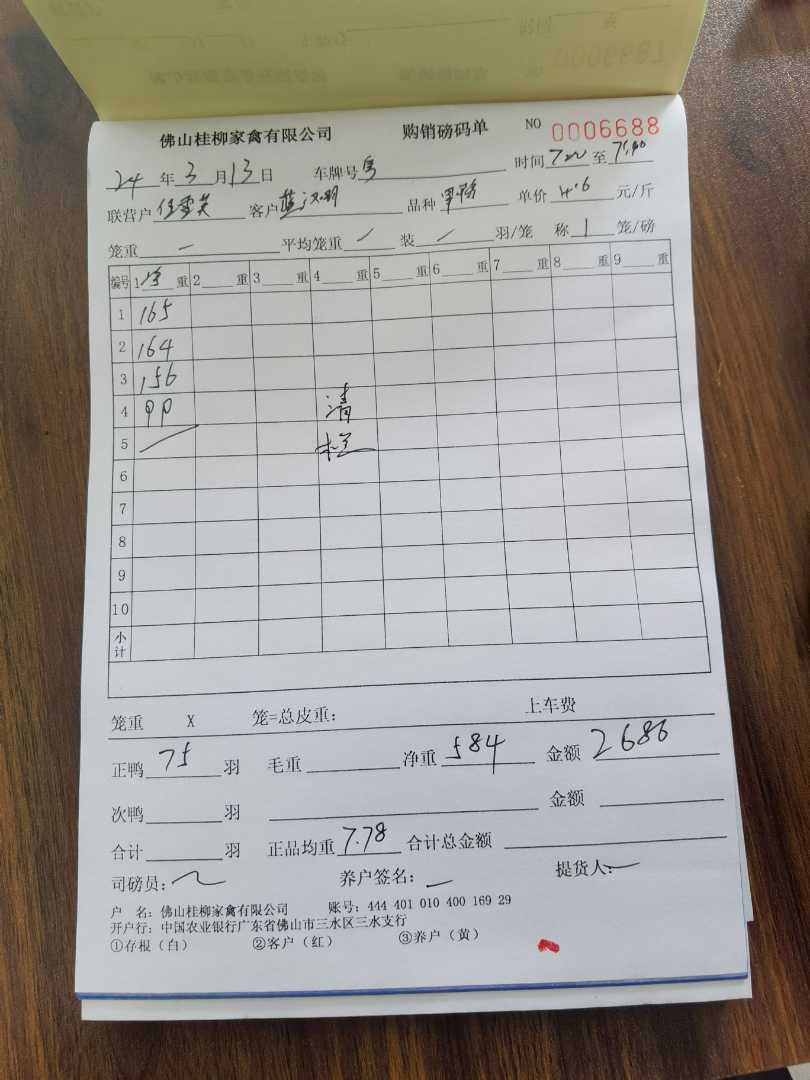 佛山桂柳家禽有限公司 购销磅码单 NO 0006688
24 年 3 月 13 日 车牌号 时间 7:00 至
联营户 客户 品种 单价 4.6 元/斤
笼重 — 平均笼重 / 装 / 羽/笼 称 1 笼/磅
编号 1 重 2 重 3 重 4 重 5 重 6 重 7 重 8 重 9 重
1 165
2 164
3 156
4 99 清
5 栏
6
7
8
9
10
小计
笼重 X 笼=总皮重: 上车费
正鸭 75 羽 毛重 净重 584 金额 2686
次鸭 羽 金额
合计 羽 正品均重 7.78 合计总金额
司磅员: 养户签名: 提货人:
户 名: 佛山桂柳家禽有限公司 账号: 444 401 010 400 169 29
开户行: 中国农业银行广东省佛山市三水区三水支行
①存根（白） ②客户（红） ③养户（黄）